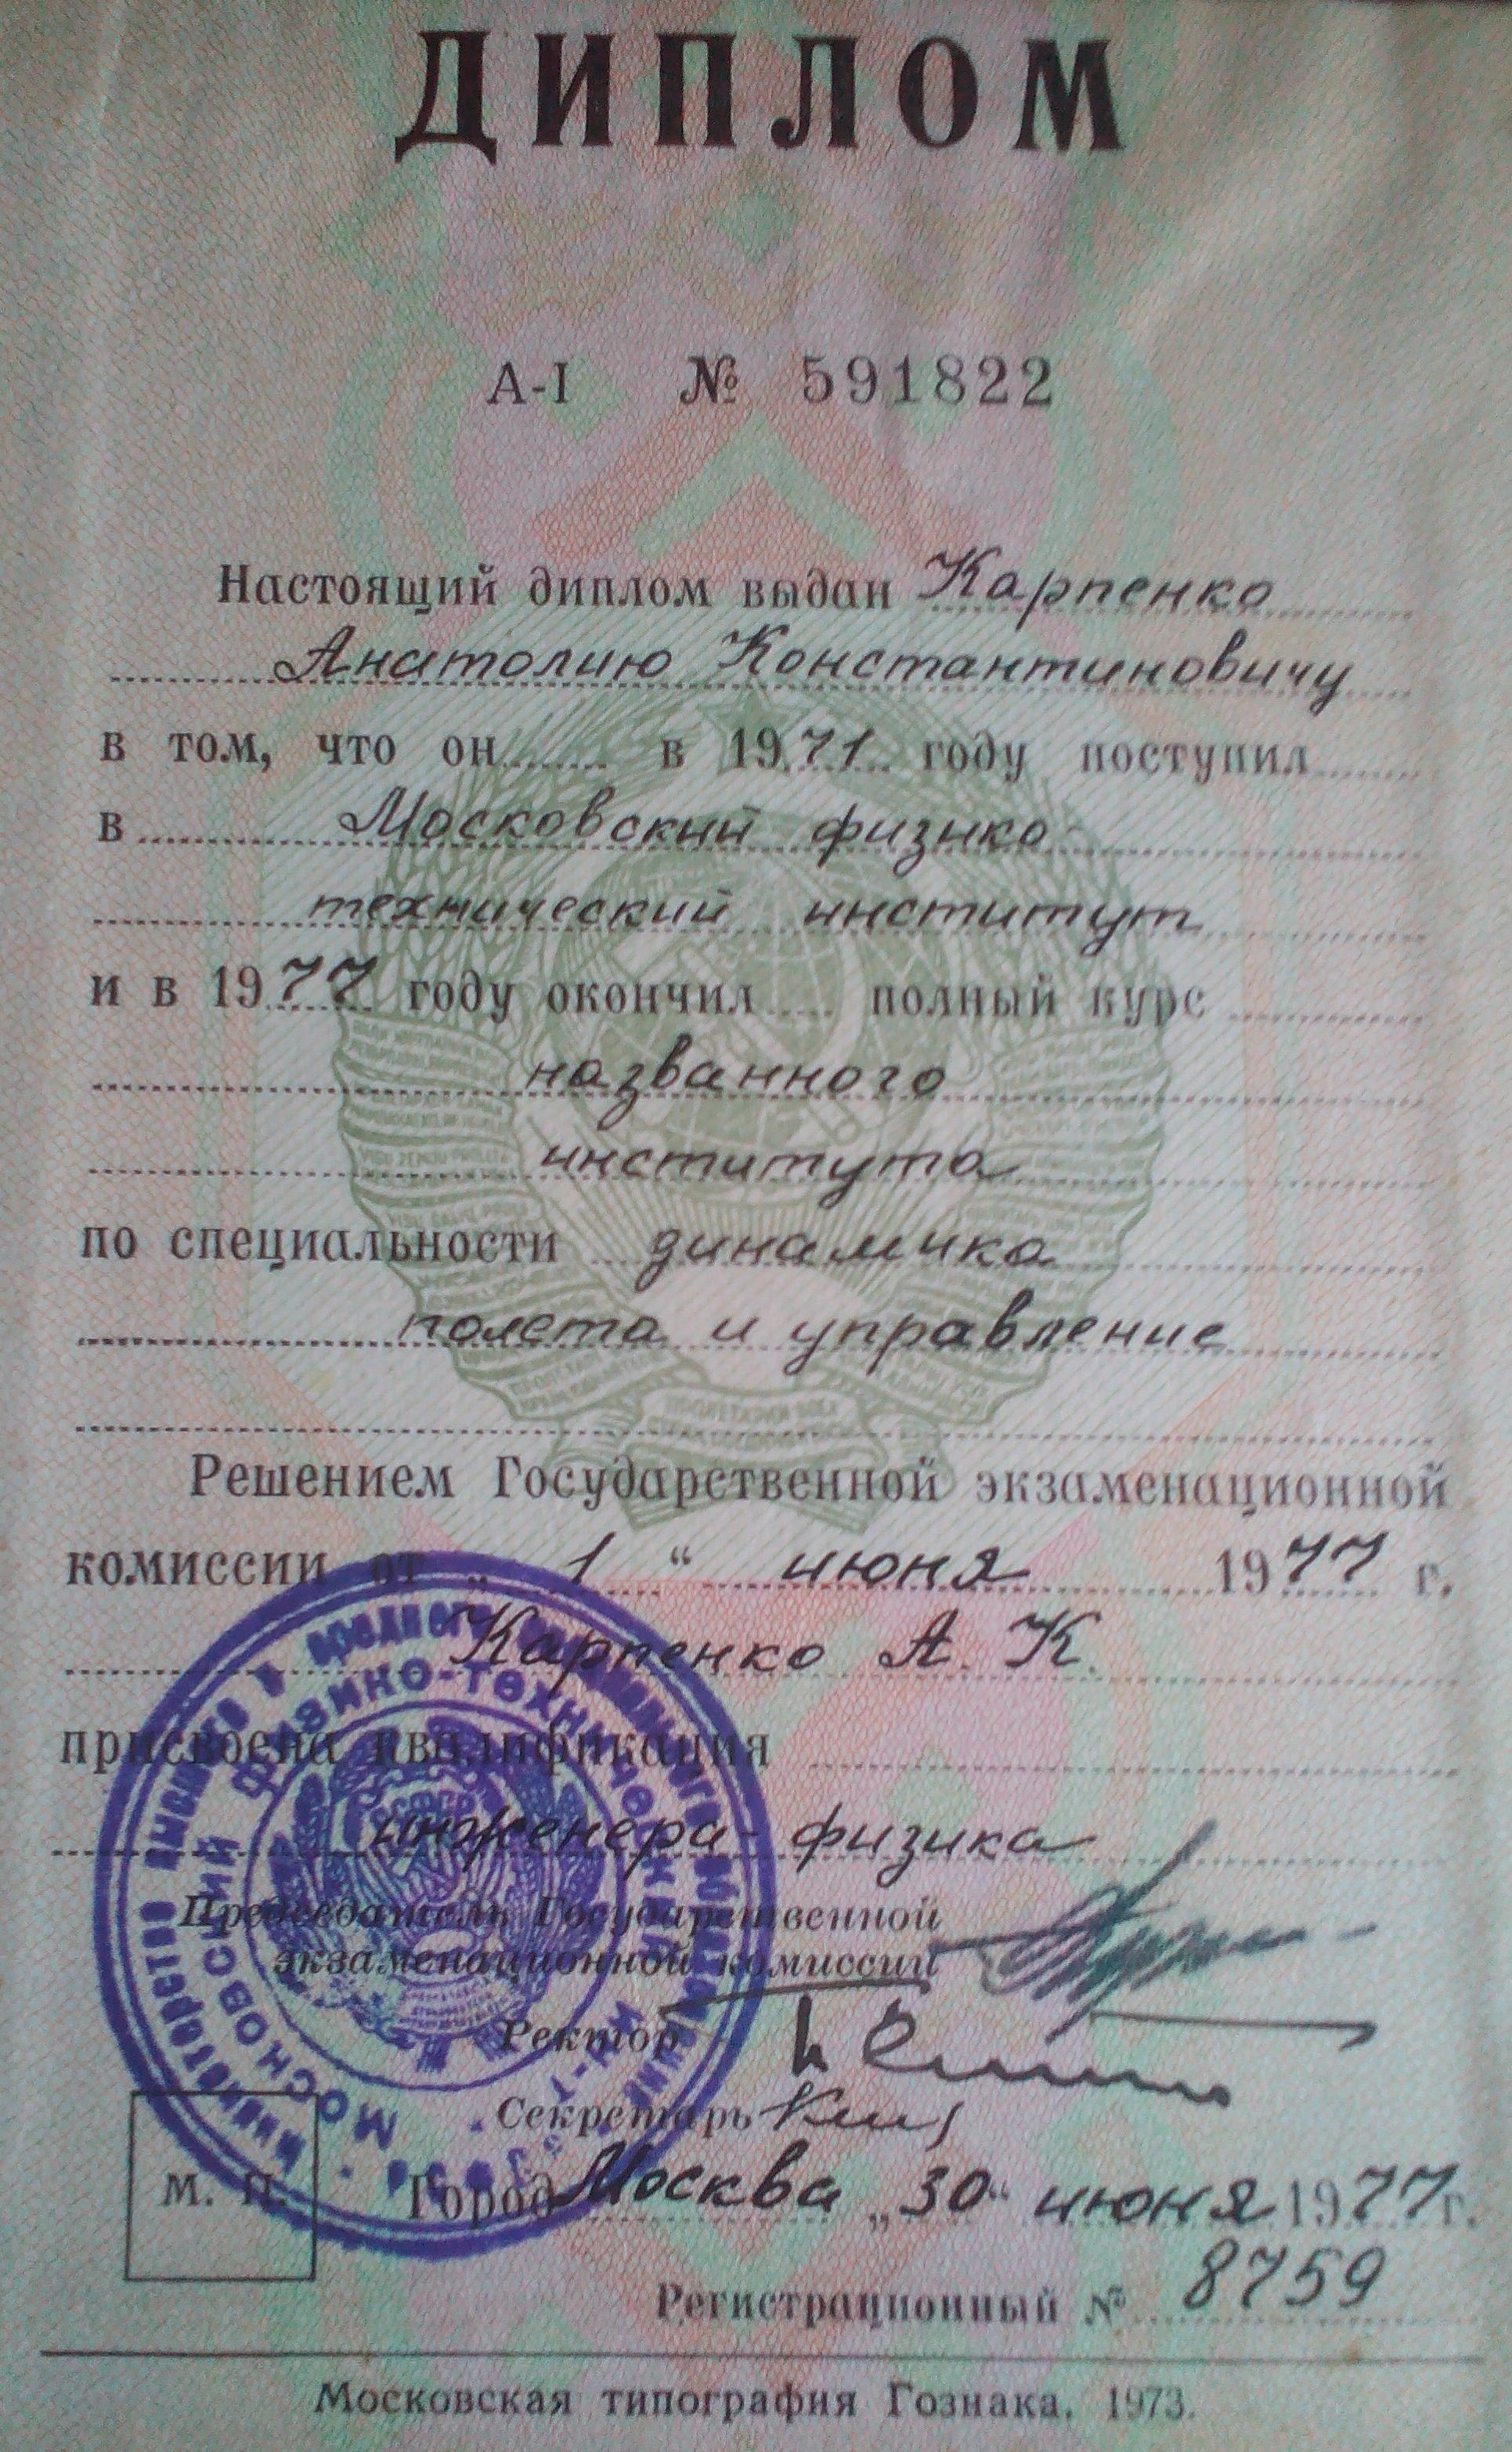 ДИПЛОМ
А-I № 591822
Настоящий диплом выдан Карпенко
Анатолию Константиновичу
в том, что он в 1971 году поступил
в Московский физико-
технический институт
и в 1977 году окончил полный курс
названного
института
по специальности динамика
полета и управление
Решением Государственной экзаменационной
комиссии от „1“ июня 1977 г.
Карпенко А. К.
присвоена квалификация
инженера-физика
Председатель Государственной
экзаменационной комиссии
Ректор
Секретарь
М. П.
Город Москва „30“ июня 1977 г.
Регистрационный № 8759
Московская типография Гознака. 1973.
Министерство высшего и среднего специального
МОСКОВСКИЙ ФИЗИКО-ТЕХНИЧЕСКИЙ ИН-Т